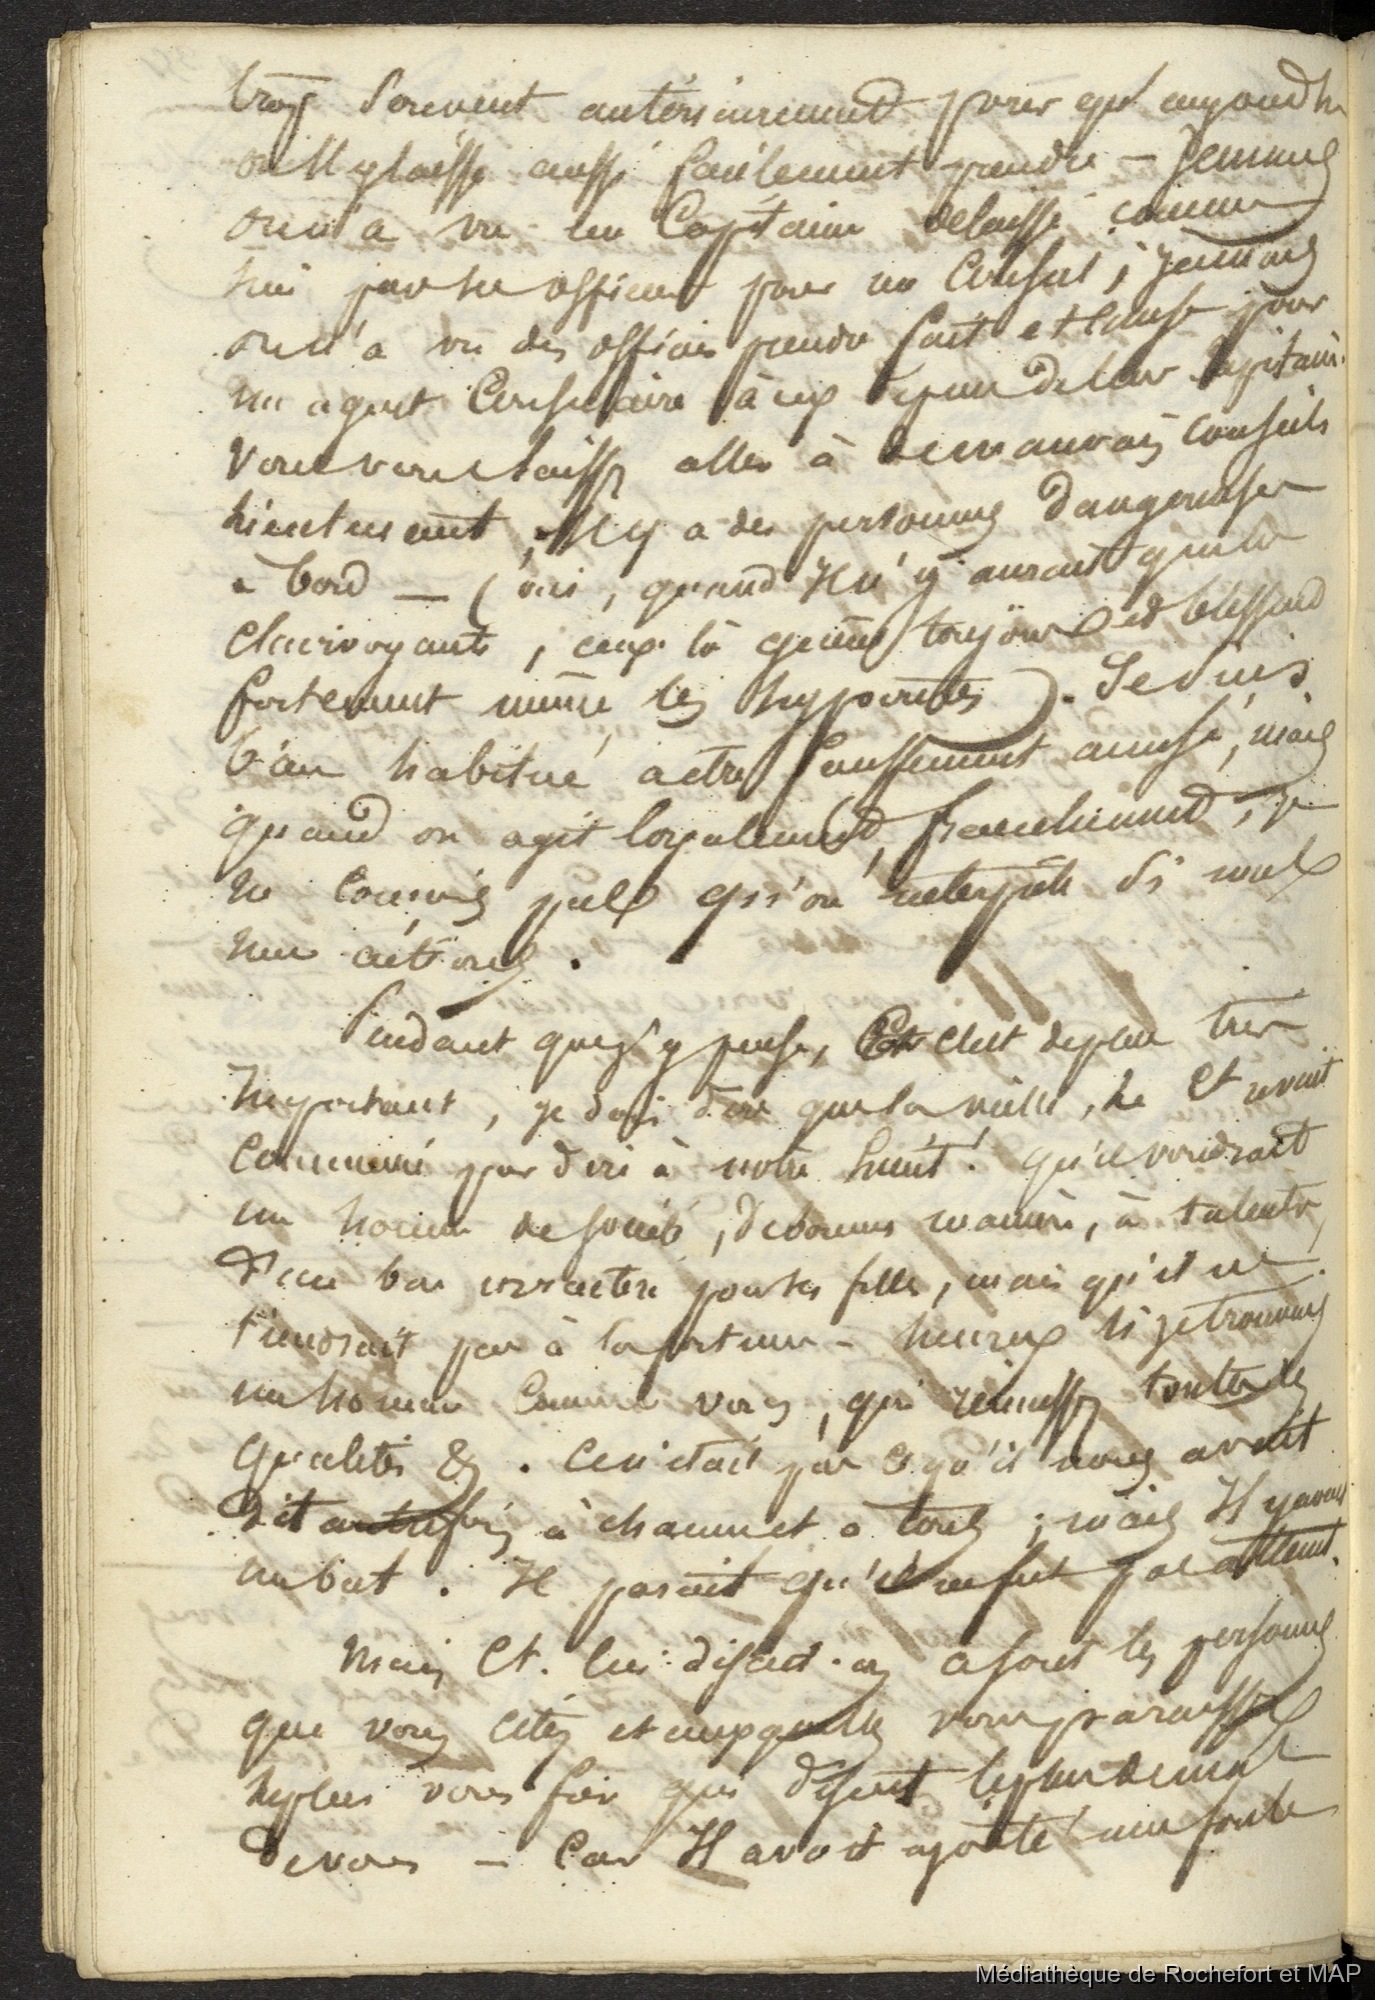 trop souvent antérieurement pour qu'aujourdh
on s'y laisse aussi facilement prendre – Jamais
on n'a vu un Capitaine délaissé comme
lui par ses officiers pour un Consul ; jamais
on n'a vu des officiers prendre fait et cause pour
un agent Consulaire à ceux de leur Capitaine.
Vous vous laissez aller à de mauvais conseils
lieutenant ; Il y a des personnes dangereuses
à bord — (oui, quand Il n'y aurait que les
clairvoyants, ceux là gênent toujours et blessent
fortement même les hypocrites). Je suis
b'en habitué a être faussement accusé, mais
quand on agit loyalement, franchement, je
ne conçois pas qu'on interprète si mal
nos actions.
Pendant que j'y pense, Car c'est de plus très
Important, je dois dire que la veille, le Ct avait
commencé par dire à notre lieut! qu'il voudrait
un homme de société, de bonnes manières, à talents,
d'un bon caractère pour ses filles, mais qu'il ne
tiendrait pas à la fortune – heureux si je trouvais
un homme comme vous, qui réunissez toutes les
qualités &. Ce n'était pas ce qu'il nous avait
dit autrefois à chacun et à tous ; mais Il y avait
un but. Il paraît qu'il ne fut pas atteint.
Mais Ct. lui disait-on ce sont les personnes
que vous citez et auxquelles vous paraissez
le plus vous fier qui disent le plus de mal
de vous – Car Il avait ajouté une foule
Médiathèque de Rochefort et MAP